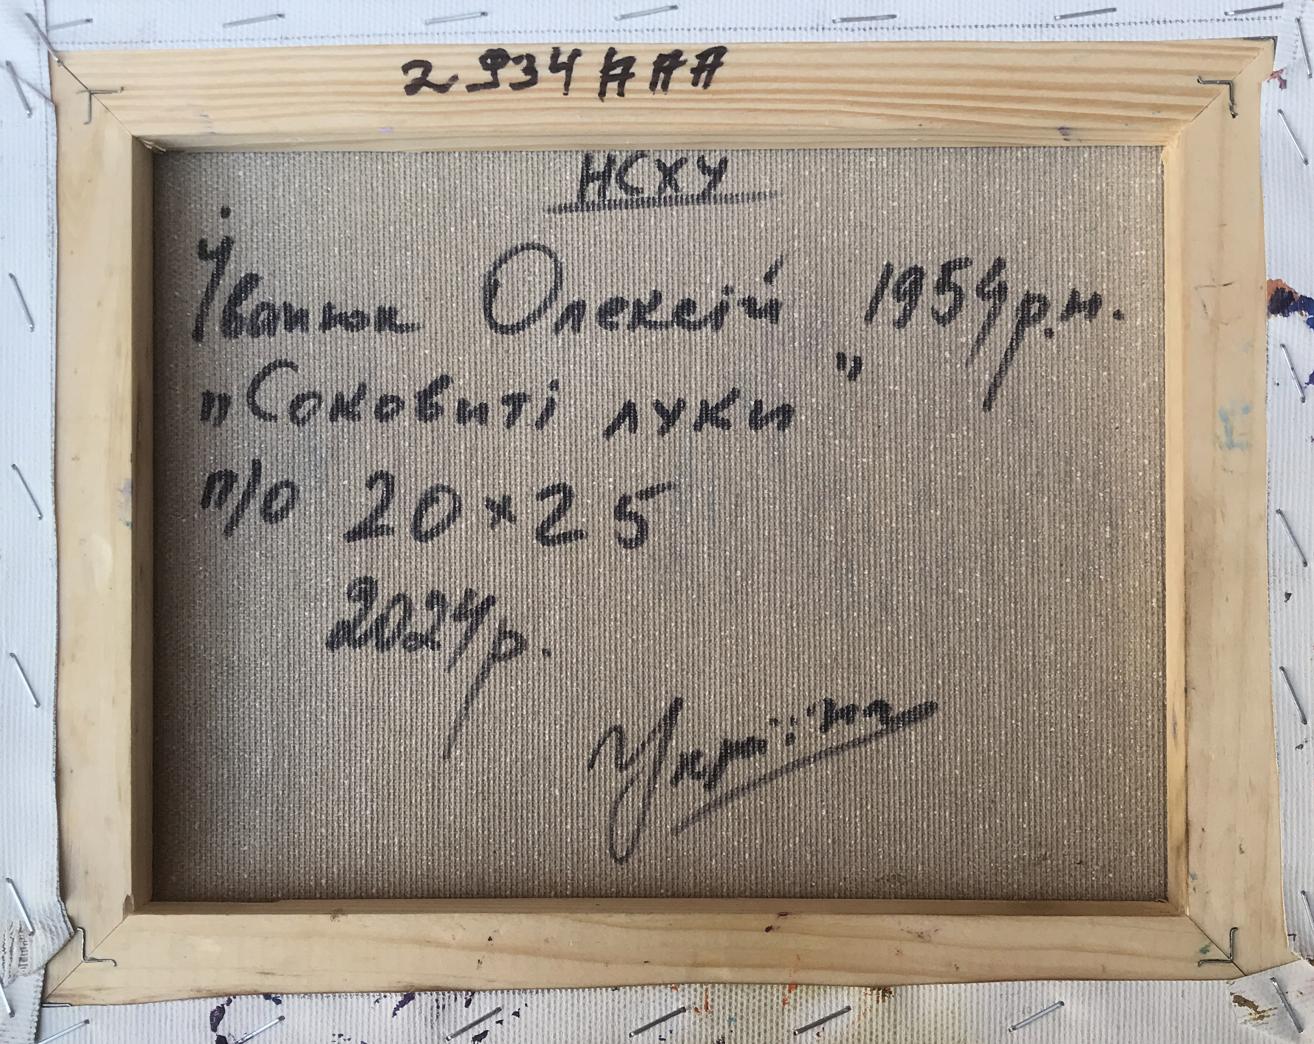 2934AAA
НСХУ
Іванюк Олексій 1954р.н.
„Соковиті луки"
п/о 20×25
2024р.
Україна